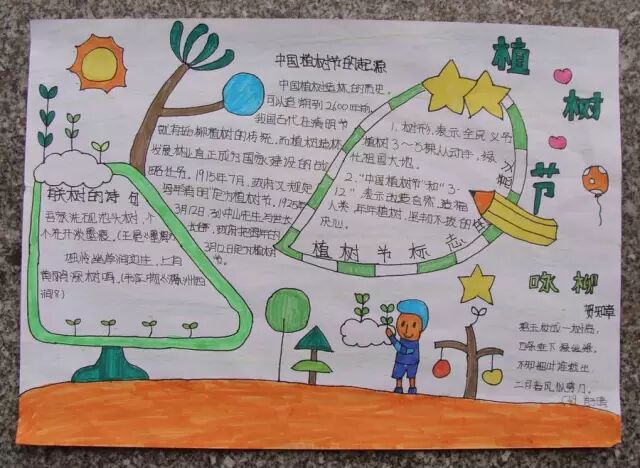 植树节
中国植树节的起源
中国植树造林的历史,
可以追溯到2600年前,
我国古代在清明节
就有插柳植树的传统,而植树造林
发展林业真正成为国家建设的战
略任务。1915年7月,政府又规定
每年清明定为植树节。1925年
3月12日,孙中山先生与世长
3月12日定为植树
节。
1.树形,表示全民义务
植树3~5棵,人人动手,绿
化祖国大地。
2."中国植树节"和"3·
12",表示改造自然,造福
人类,年年植树,坚韧不拔的
决心。
植树节标志
有关树的诗句
吾家洗砚池头树,个
个花开淡墨痕。(王冕《墨梅》)
独怜幽草涧边生,上有
黄鹂深树鸣。(韦应物《滁州西
涧》)
咏柳
贺知章
碧玉妆成一树高,
万条垂下绿丝绦。
不知细叶谁裁出,
二月春风似剪刀。